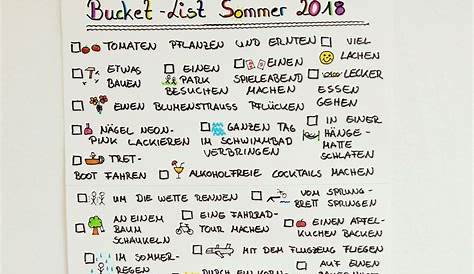 Bucket-List Sommer 2018
TOMATEN PFLANZEN UND ERNTEN VIEL
LACHEN
ETWAS EINEN EINEN
BAUEN PARK SPIELEABEND LECKER
BESUCHEN MACHEN ESSEN
EINEN BLUMENSTRAUSS PFLÜCKEN GEHEN
NÄGEL NEON- GANZEN TAG IN EINER
PINK LACKIEREN IM SCHWIMMBAD HÄNGE-
VERBRINGEN MATTE
TRET- SCHLAFEN
BOOT FAHREN ALKOHOLFREIE COCKTAILS MACHEN
UM DIE WETTE RENNEN VOM SPRUNG-
BRETT SPRINGEN
AN EINEM EINE FAHRRAD-
BAUM TOUR MACHEN EINEN APFEL-
SCHAUKELN KUCHEN BACKEN
IM SOMMER- MIT DEM FLUGZEUG FLIEGEN
REGEN AUF EINEN
DURCH EIN KORN-